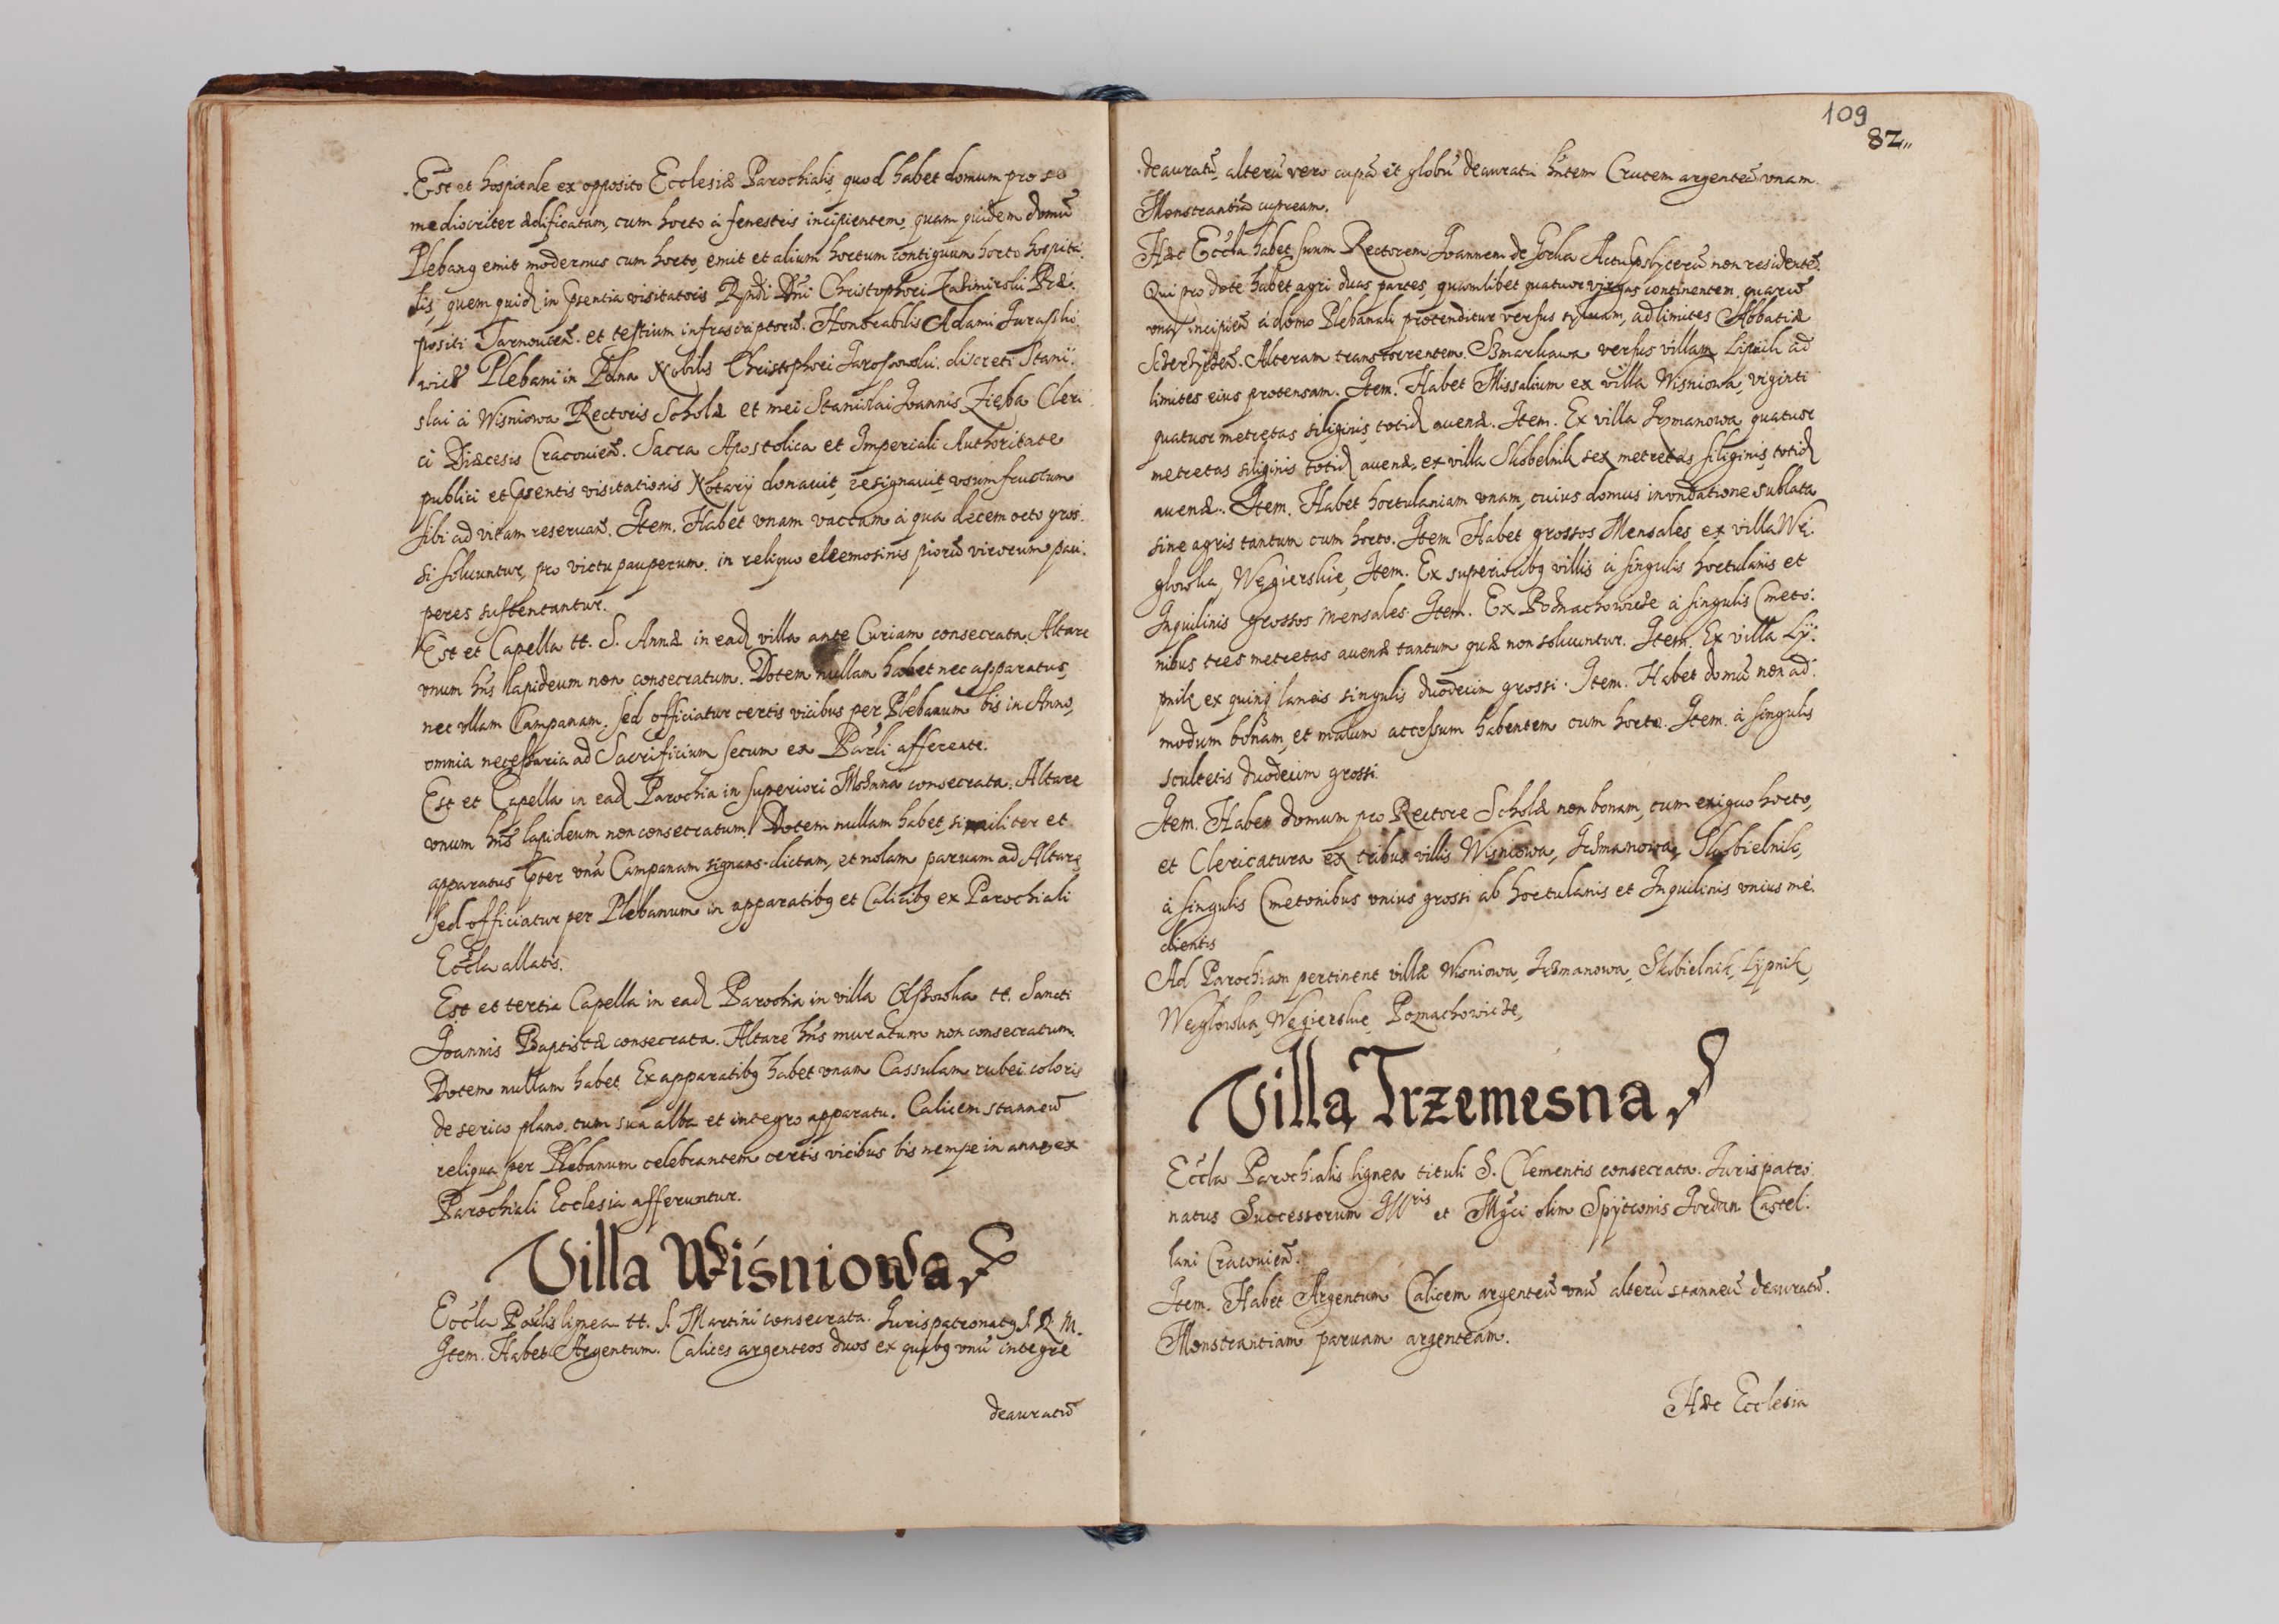 Est et hospitale ex opposito Ecclesiæ Parochialis, quod habet domum pro se
mediocriter ædificatam, cum horto à fenestris incipientem, quam quidem domũ
Plebanꝯ emit modernus cum horto, emit et alium hortum contiguum horto hospita:
lis, quem quid in Psentia visitatoris Rndi Dni Christophori Præ:
positi Tarnouieñ. et testium infrascriptorũ. Honorabilis Adami
Plebani in Nobilis Christophori discreti Stani:
slai à Wisniowa Rectoris Scholæ et mei Stanislai Joannis Zięba Cleri
ci Diæcesis Cracouieñ. Sacra Apostolica et Imperiali Authoritate
publici et Psentis visitationis Notarij donauit, resignauit, vsumfructum
sibi ad vitam reseruañ. Item. Habet vnam vaccam à qua decem octo gros:
si soluuntur, pro victu pauperum. in reliquo eleemosinis piorũ virorum pau:
peres sustentantur.
Est et Capella tt. S. Annæ in ead villa ante Curiam consecrata. Altare
vnum hñs lapideum non consecratum. Dotem nullam habet nec apparatus,
nec vllam Campanam. sed officiatur certis vicibus per Plebanum bis in Anno,
omnia necessaria ad Sacrificium secum ex afferente.
Est et Capella in ead Parochia in superiori consecrata. Altare
vnum hñs lapideum non consecratum. Dotem nullam habet, similiter et
apparatus Pter vnã Campanam signans dictam, et nolam paruam ad Altare,
sed officiatur per Plebanum in apparatibꝯ et Calicibꝯ ex Parochiali
Eccła allatis.
Est et tertia Capella in ead Parochia in villa tt. Sancti
Joannis Baptistæ consecrata. Altare hñs muratum non consecratum.
Dotem nullam habet. Ex apparatibꝯ habet vnam Cassulam rubei coloris
de serico plano cum sua alba et integro apparatu. Calicem stanneũ
reliqua per Plebanum celebrantem certis vicibus bis nempe in anno ex
Parochiali Ecclesia afferuntur.
Villa Wiśniowa
Eccła lignea tt. S. Martini consecrata. Jurispatronatꝯ S. R. M.
Item. Habet Argentum. Calices argenteos duos ex quibꝯ vnũ integre
deauratũ
109
82
deauratũ, alterũ vero cupã et globũ deauratũ hñtem Crucem argenteã vnam.
Monstrantiã cupream.
Hæc Eccła habet suum Rectorem Joannem de non residentẽ.
Qui pro dote habet agri duas partes, quamlibet quatuor virgas continentem. quarũ
vna incipieñ à domo Plebanali protenditur versus syluam, ad limites Abbatiæ
Alteram trans torrentem versus villam Lipnik ad
limites eius protensam. Item. Habet Missalium ex villa Wisniowa, viginti
quatuor metretas siliginis totid auenæ. Item. Ex villa quatuor
metretas siliginis totid auenæ, ex villa Skobelnik sex metretas siliginis totid
auenæ. Item. Habet hortulaniam vnam, cuius domus inondatione sublata
sine agris tantum cum horto. Item Habet grossos Mensales ex villa Wę:
glowka, Węgierskie, Item. Ex superioribꝯ villis à singulis hortulanis et
Inquilinis grossos mensales. Item. Ex à singulis Cmeto:
nibus tres metretas auenæ tantum quæ non soluuntur. Item. Ex villa Ly:
pnik ex laneis singulis duodecim grossi. Item. Habet domũ non ad:
modum bonam, et malum accessum habentem cum horto. Item. à singulis
scultetis duodecim grossi.
Item. Habet domum pro Rectore Scholæ non bonam, cum exiguo horto,
et Clericatura ex tribus villis Wisniowa, Skobielnik,
à singulis Cmetonibus vnius grossi ab hortulanis et Inquilinis vnius me:
dientis
Ad Parochiam pertinent villæ Wisniowa, Skobielnik, Lypnik,
Węglowka, Węgierskie, Poznachowicze,
Villa Trzemesna
Eccła Parochialis lignea tituli S. Clementis consecrata. Jurispatro:
natus Successorum Illris et Mgci olim Spytconis Jordan Castel:
lani Cracouieñ.
Item. Habet Argentum Calicem argenteũ vnũ alterũ stanneũ deauratũ.
Monstrantiam paruam argenteam.
Hæc Ecclesia